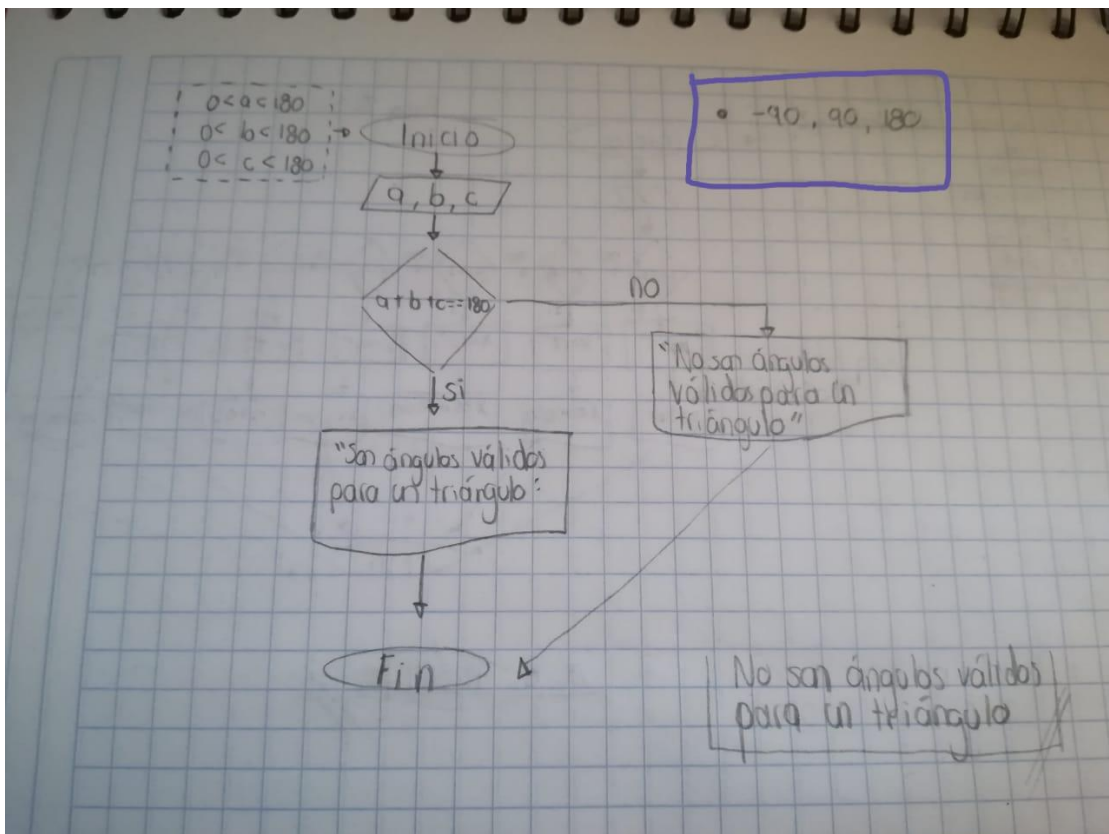 0<a<180
0< b<180
0< c<180
Inicio
• -90, 90, 180
a, b, c
a+b+c==180
no
si
"No son ángulos
válidos para un
triángulo"
"Son ángulos válidos
para un triángulo"
Fin
No son ángulos válidos
para un triángulo